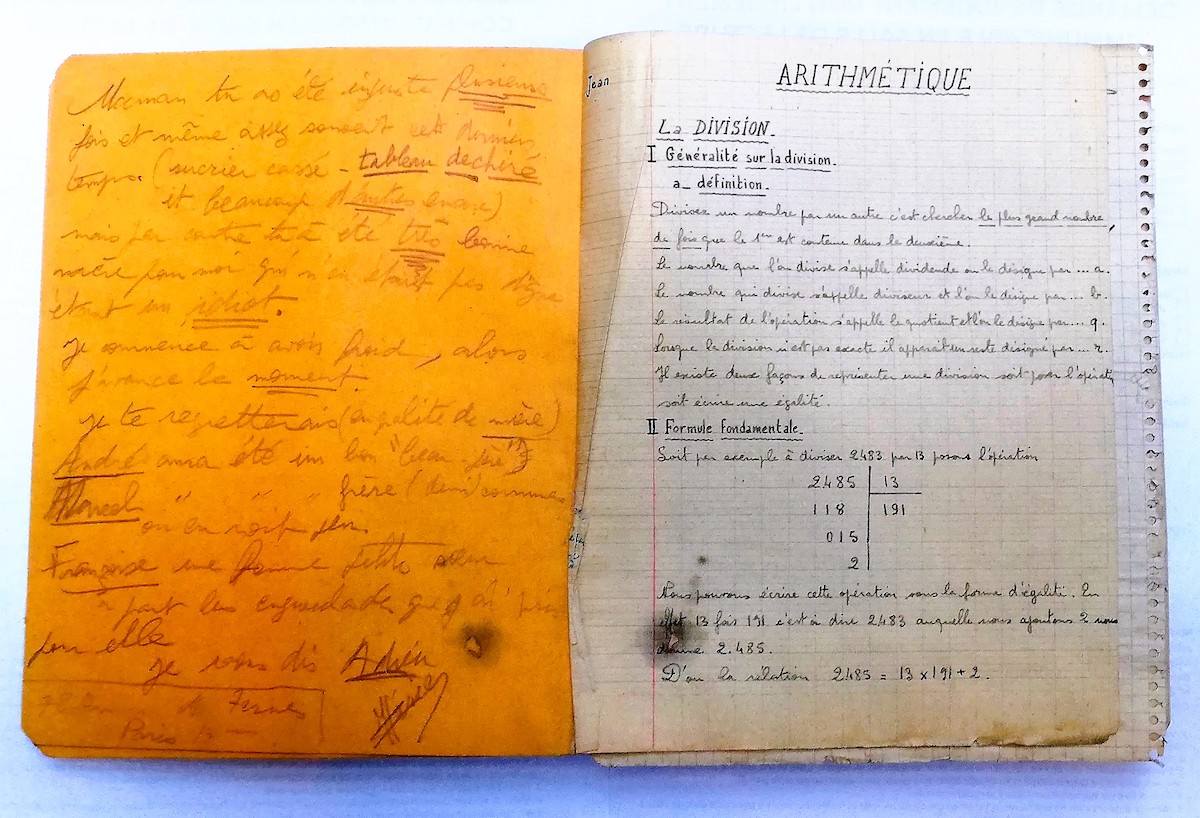 Maman tu as été injuste plusieurs
fois et même assez souvent ces derniers
temps. (sucrier cassé - tableau dechiré
et beaucoup d'autres encore)
mais par contre tu à été très bonne
mère pour moi qui n'en etait pas digne
étant un idiot.
Je commence à avoir froid, alors
j'avance le moment.
je te regretterais (en qalité de mère)
André aura été un bon "beau-père"
Marcel " " " frère (demi) comme
on en voit peu.
Françoise une bonne petite sœur
à part les engueulades que j'ai pris
pour elle
Je vous dis Adieu
Ternes
Paris
Jean
ARITHMÉTIQUE
La DIVISION.
I Généralité sur la division.
a_ définition.
Divisez un nombre par un autre c'est chercher le plus grand nombre
de fois que le 1er est contenu dans le deuxième.
Le nombre que l'on divise s'appelle dividende on le désigne par ... a.
Le nombre qui divise s'appelle diviseur et l'on le désigne par ... b.
Le résultat de l'opération s'appelle le quotient et l'on le désigne par ... q.
Lorsque la division n'est pas exacte il apparait un reste désigné par ... r.
Il existe deux façons de représenter une division soit poser l'opérat
soit écrire une égalité.
II Formule fondamentale.
Soit par exemple à diviser 2483 par 13 posons l'opération
2485 13
118 191
015
2
Nous pouvons écrire cette opération sous la forme d'égalité. En
effet 13 fois 191 c'est à dire 2483 auquelle nous ajoutons 2 nous
donne 2.485.
D'ou la relation 2485 = 13 x 191 + 2.